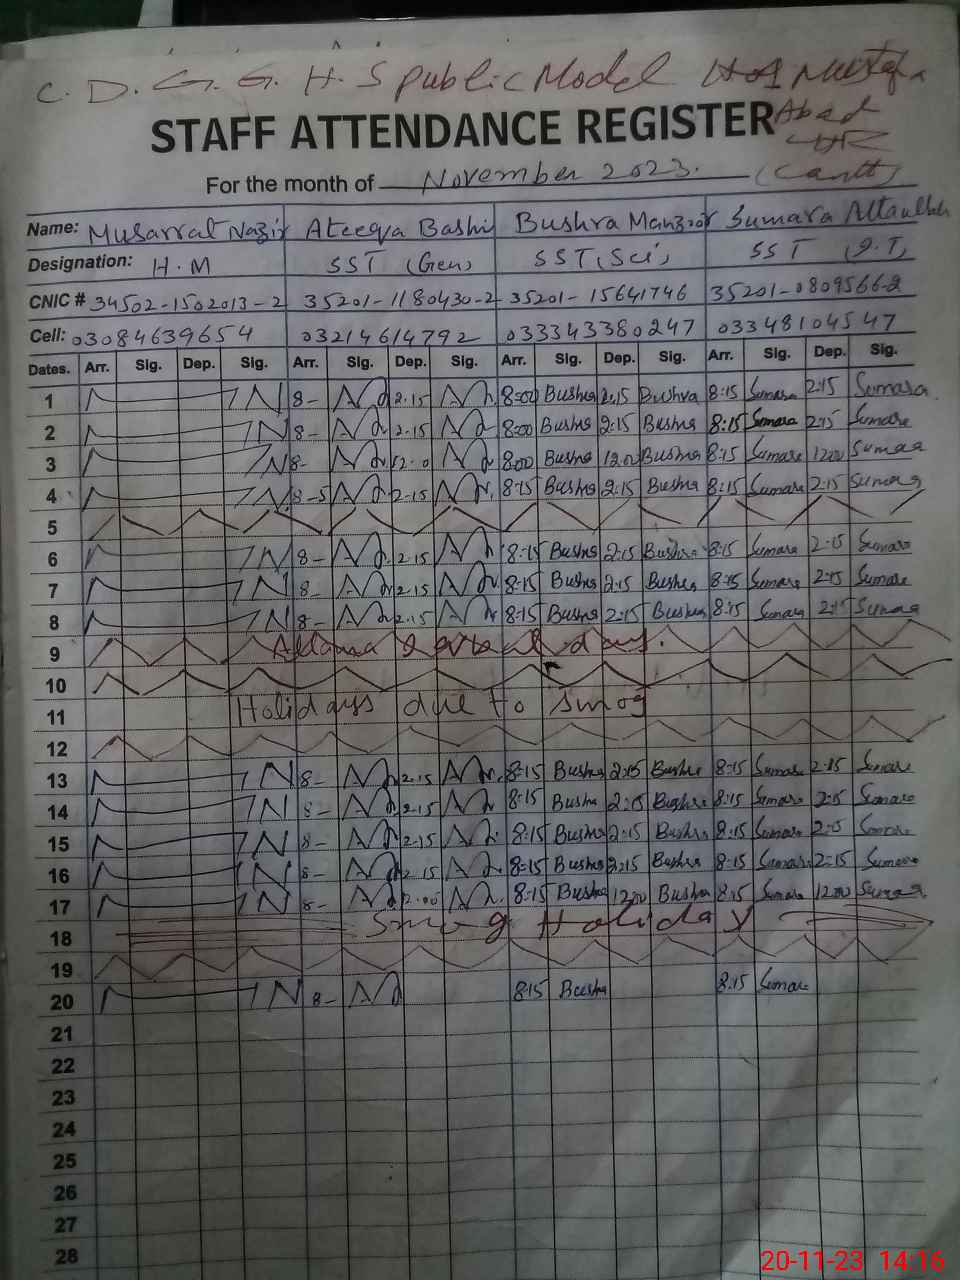 C. D. G. G. H. S public Model No1 Mustafa
Abad
LHR
(Cantt)
STAFF ATTENDANCE REGISTER
For the month of November 2023.
Name: Musarrat Nazir Ateeqa Bashir Bushra Manzoor Sumara Attaullah
Designation: H.M SST (Gen) SST (Sci) SST (I.T)
CNIC # 34502-1502013-2 35201-1180430-2 35201-15641746 35201-0809566-2
Cell: 03084639654 03214614792 033343380247 03348104547
Dates. Arr. Sig. Dep. Sig. Arr. Sig. Dep. Sig. Arr. Sig. Dep. Sig. Arr. Sig. Dep. Sig.
1 8- 2.15 8:00 Bushra 2:15 Bushra 8:15 Sumara 2:15 Sumara
2 8- 2.15 8:00 Bushra 2:15 Bushra 8:15 Sumara 2:15 Sumara
3 8- 12.0 8:00 Bushra 12:00 Bushra 8:15 Sumara 12:00 Sumara
4 8-5 2.15 8:15 Bushra 2:15 Bushra 8:15 Sumara 2:15 Sumara
5
6 8- 2.15 8:15 Bushra 2:15 Bushra 8:15 Sumara 2:15 Sumara
7 8- 2.15 8:15 Bushra 2:15 Bushra 8:15 Sumara 2:15 Sumara
8 8- 2.15 8:15 Bushra 2:15 Bushra 8:15 Sumara 2:15 Sumara
9 day.
10
11 Holidays due to smog
12
13 8- 2.15 8:15 Bushra 2:15 Bushra 8:15 Sumara 2:15 Sumara
14 8- 2.15 8:15 Bushra 2:15 Bushra 8:15 Sumara 2:15 Sumara
15 8- 2.15 8:15 Bushra 2:15 Bushra 8:15 Sumara 2:15 Sumara
16 8- 2.15 8:15 Bushra 2:15 Bushra 8:15 Sumara 2:15 Sumara
17 8- 2.00 8:15 Bushra 12:00 Bushra 8:15 Sumara 12:00 Sumara
18 Smog Holiday
19
20 8- 8:15 Bushra 8:15 Sumara
21
22
23
24
25
26
27
28
20-11-23 14:16